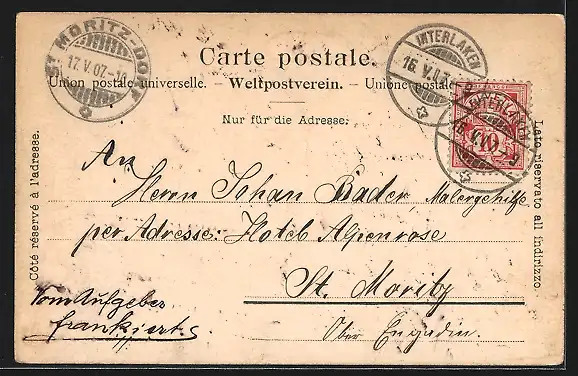 ST MORITZ-DORF
17. V. 07-10
INTERLAKEN
16. V. 07
Carte postale.
Union postale universelle. – Weltpostverein. – Unione postale
INTERLAKEN
16. V. 07
10
Nur für die Adresse.
Côté réservé à l'adresse.
Lato riservato all indirizzo.
An
Herrn Johan Bader Malergehilfe
per Adresse: Hotel Alpenrose
St. Moritz
Ober Engadin.
Vom Aufgeber
frankiert